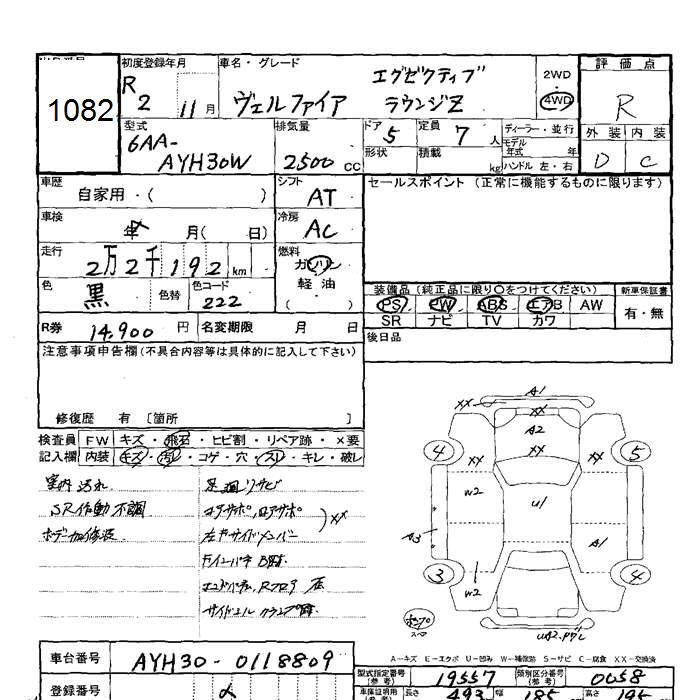 初度登録年月 車名・グレード 評価点
1082 R 2 11月 ヴェルファイア エグゼクティブ ラウンジZ 2WD 4WD R
型式 排気量 ドア 定員 ディーラー・並行 外装 内装
6AA-AYH30W 2500cc 5 7人 モデル年式 年 D C
形状 積載 kg ハンドル 左・右
車歴 シフト セールスポイント(正常に機能するものに限ります)
自家用・( ) AT
車検 冷房
年 月( 日) AC
走行 燃料
2万2千192km ガソリン
色 色替 色コード 軽油
黒 222 ( )
装備品(純正品に限り○をつけてください) 新車保証書
PS PW ABS エアB AW 有・無
SR ナビ TV カワ
R券 14,900円 名変期限 月 日 後日品
注意事項申告欄(不具合内容等は具体的に記入して下さい)
修復歴 有 [箇所 ]
検査員 FW キズ・飛石・ヒビ割・リペア跡・×要
記入欄 内装 キズ・汚れ・コゲ・穴・スリ・キレ・破レ
室内汚れ 足廻りサビ
SR作動不調 コアサポ,ロアサポ
ボデー加修装 左Fサイドメンバー )XX
A1
XX XX
A2
4 XX XX XX 5
W2 U1
A3 A1
3 W2 4
スペア
A−キズ E−エクボ U−凹み W−補修跡 S−サビ C−腐食 XX−交換済
車台番号 AYH30-0118809
型式指定番号(参考) 19557 類別区分番号(参考) 0058
登録番号
車庫証明用 長さ 493 幅 185 高さ 195